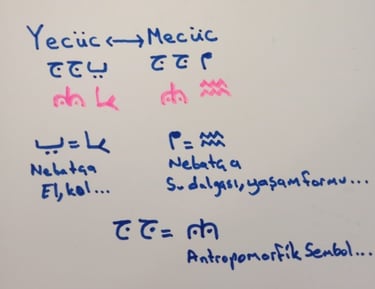 Yecüc ↔ Mecüc
ج ج ب ج ج م
ب = م =
Nebatça Nebatça
El, kol... Su dalgası, yaşam formu...
ج ج =
Antropomorfik Sembol...